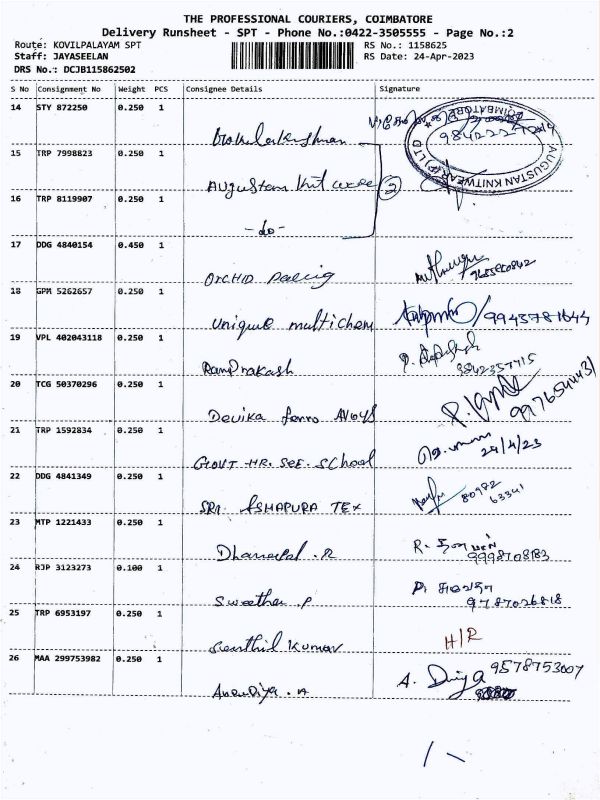 THE PROFESSIONAL COURIERS, COIMBATORE
Delivery Runsheet - SPT - Phone No.:0422-3505555 - Page No.:2
Route: KOVILPALAYAM SPT RS No.: 1158625
Staff: JAYASEELAN RS Date: 24-Apr-2023
DRS No.: DCJB115862502
S No Consignment No Weight PCS Consignee Details Signature
14 STY 872250 0.250 1
COIMBATORE
AUGUSTAN KNITWEAR (P) LTD
15 TRP 7998823 0.250 1
Augustan Knit were 3
16 TRP 8119907 0.250 1
-do-
17 DDG 4840154 0.450 1
ORCHID
18 GPM 5262657 0.250 1
Unique multichem 9943781644
19 VPL 402043118 0.250 1
RamPrakash 9842357715
20 TCG 50370296 0.250 1
Devika ferro Alloys
21 TRP 1592834 0.250 1
GOVT HR. SEE. SCHool 24/4/23
22 DDG 4841349 0.250 1
SRI. ASHAPURA TEX 80972 63341
23 MTP 1221433 0.250 1
Dhanapal . R R. 9998708183
24 RJP 3123273 0.100 1
Swetha . P P. 9787026818
25 TRP 6953197 0.250 1
Senthil Kumar H/R
26 MAA 299753982 0.250 1
A. Divya 9578753007